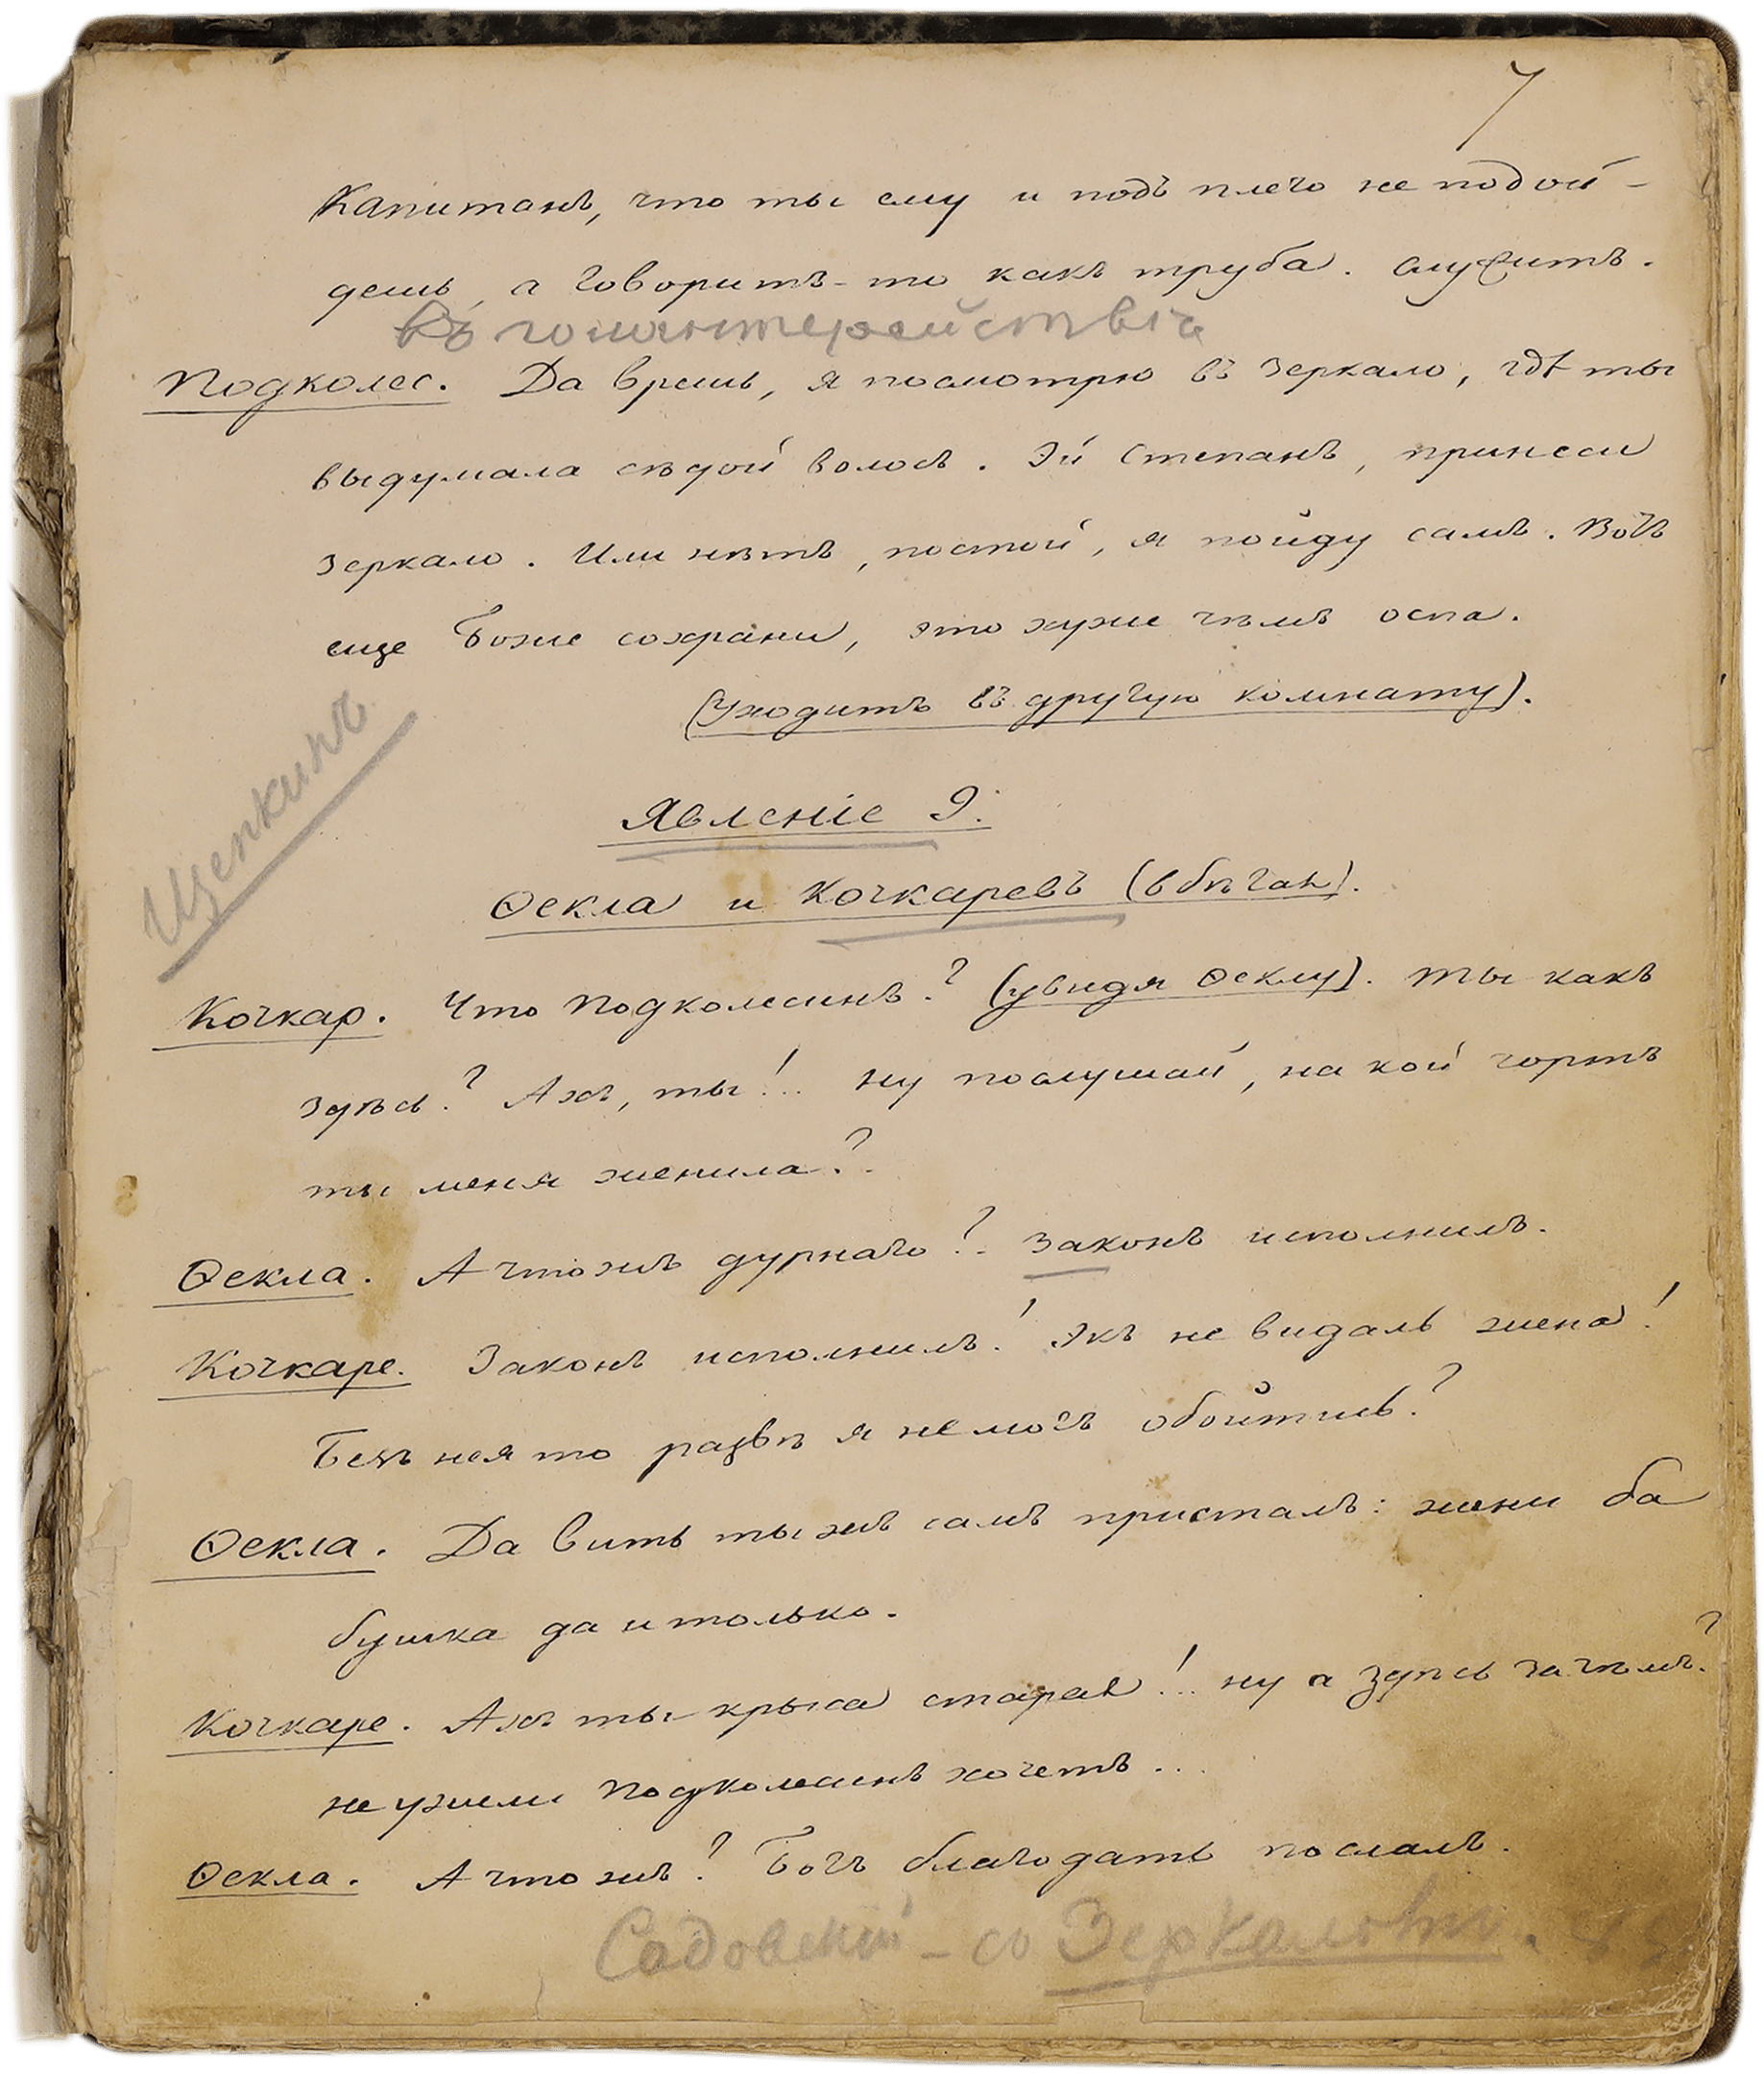 7
Капитанъ, что ты ему и подъ плечо не подой-
дешь, а говоритъ-то какъ труба. служитъ.
Въ
Подколес. Да врешь, я посмотрю въ зеркало, гдѣ ты
выдумала сѣдой волосъ. Эй Степанъ, принеси
зеркало. Или нѣтъ, постой, я пойду самъ. Вотъ
еще Боже сохрани, это хуже чѣмъ оспа.
(Уходитъ въ другую комнату).
Щепкинъ
Явленіе 9.
Ѳекла и Кочкаревъ (вбѣгая).
Кочкар. Что Подколесинъ? (увидя Ѳеклу). Ты какъ
здѣсь? Ахъ, ты!.. Ну послушай, на кой чортъ
ты меня женила?
Ѳекла. А чтожъ дурнаго? Законъ исполнилъ.
Кочкаре. Законъ исполнилъ! Экъ невидаль жена!
Безъ нея то развѣ я не могъ обойтись?
Ѳекла. Да вить ты жъ самъ присталъ: жени ба
бушка да и только.
Кочкаре. Ахъ ты крыса старая!.. ну а здѣсь зачѣмъ?
не ужели Подколесинъ хочетъ...
Ѳекла. А что жъ? Богъ благодать послалъ.
Садовскій - со Зеркаломъ.